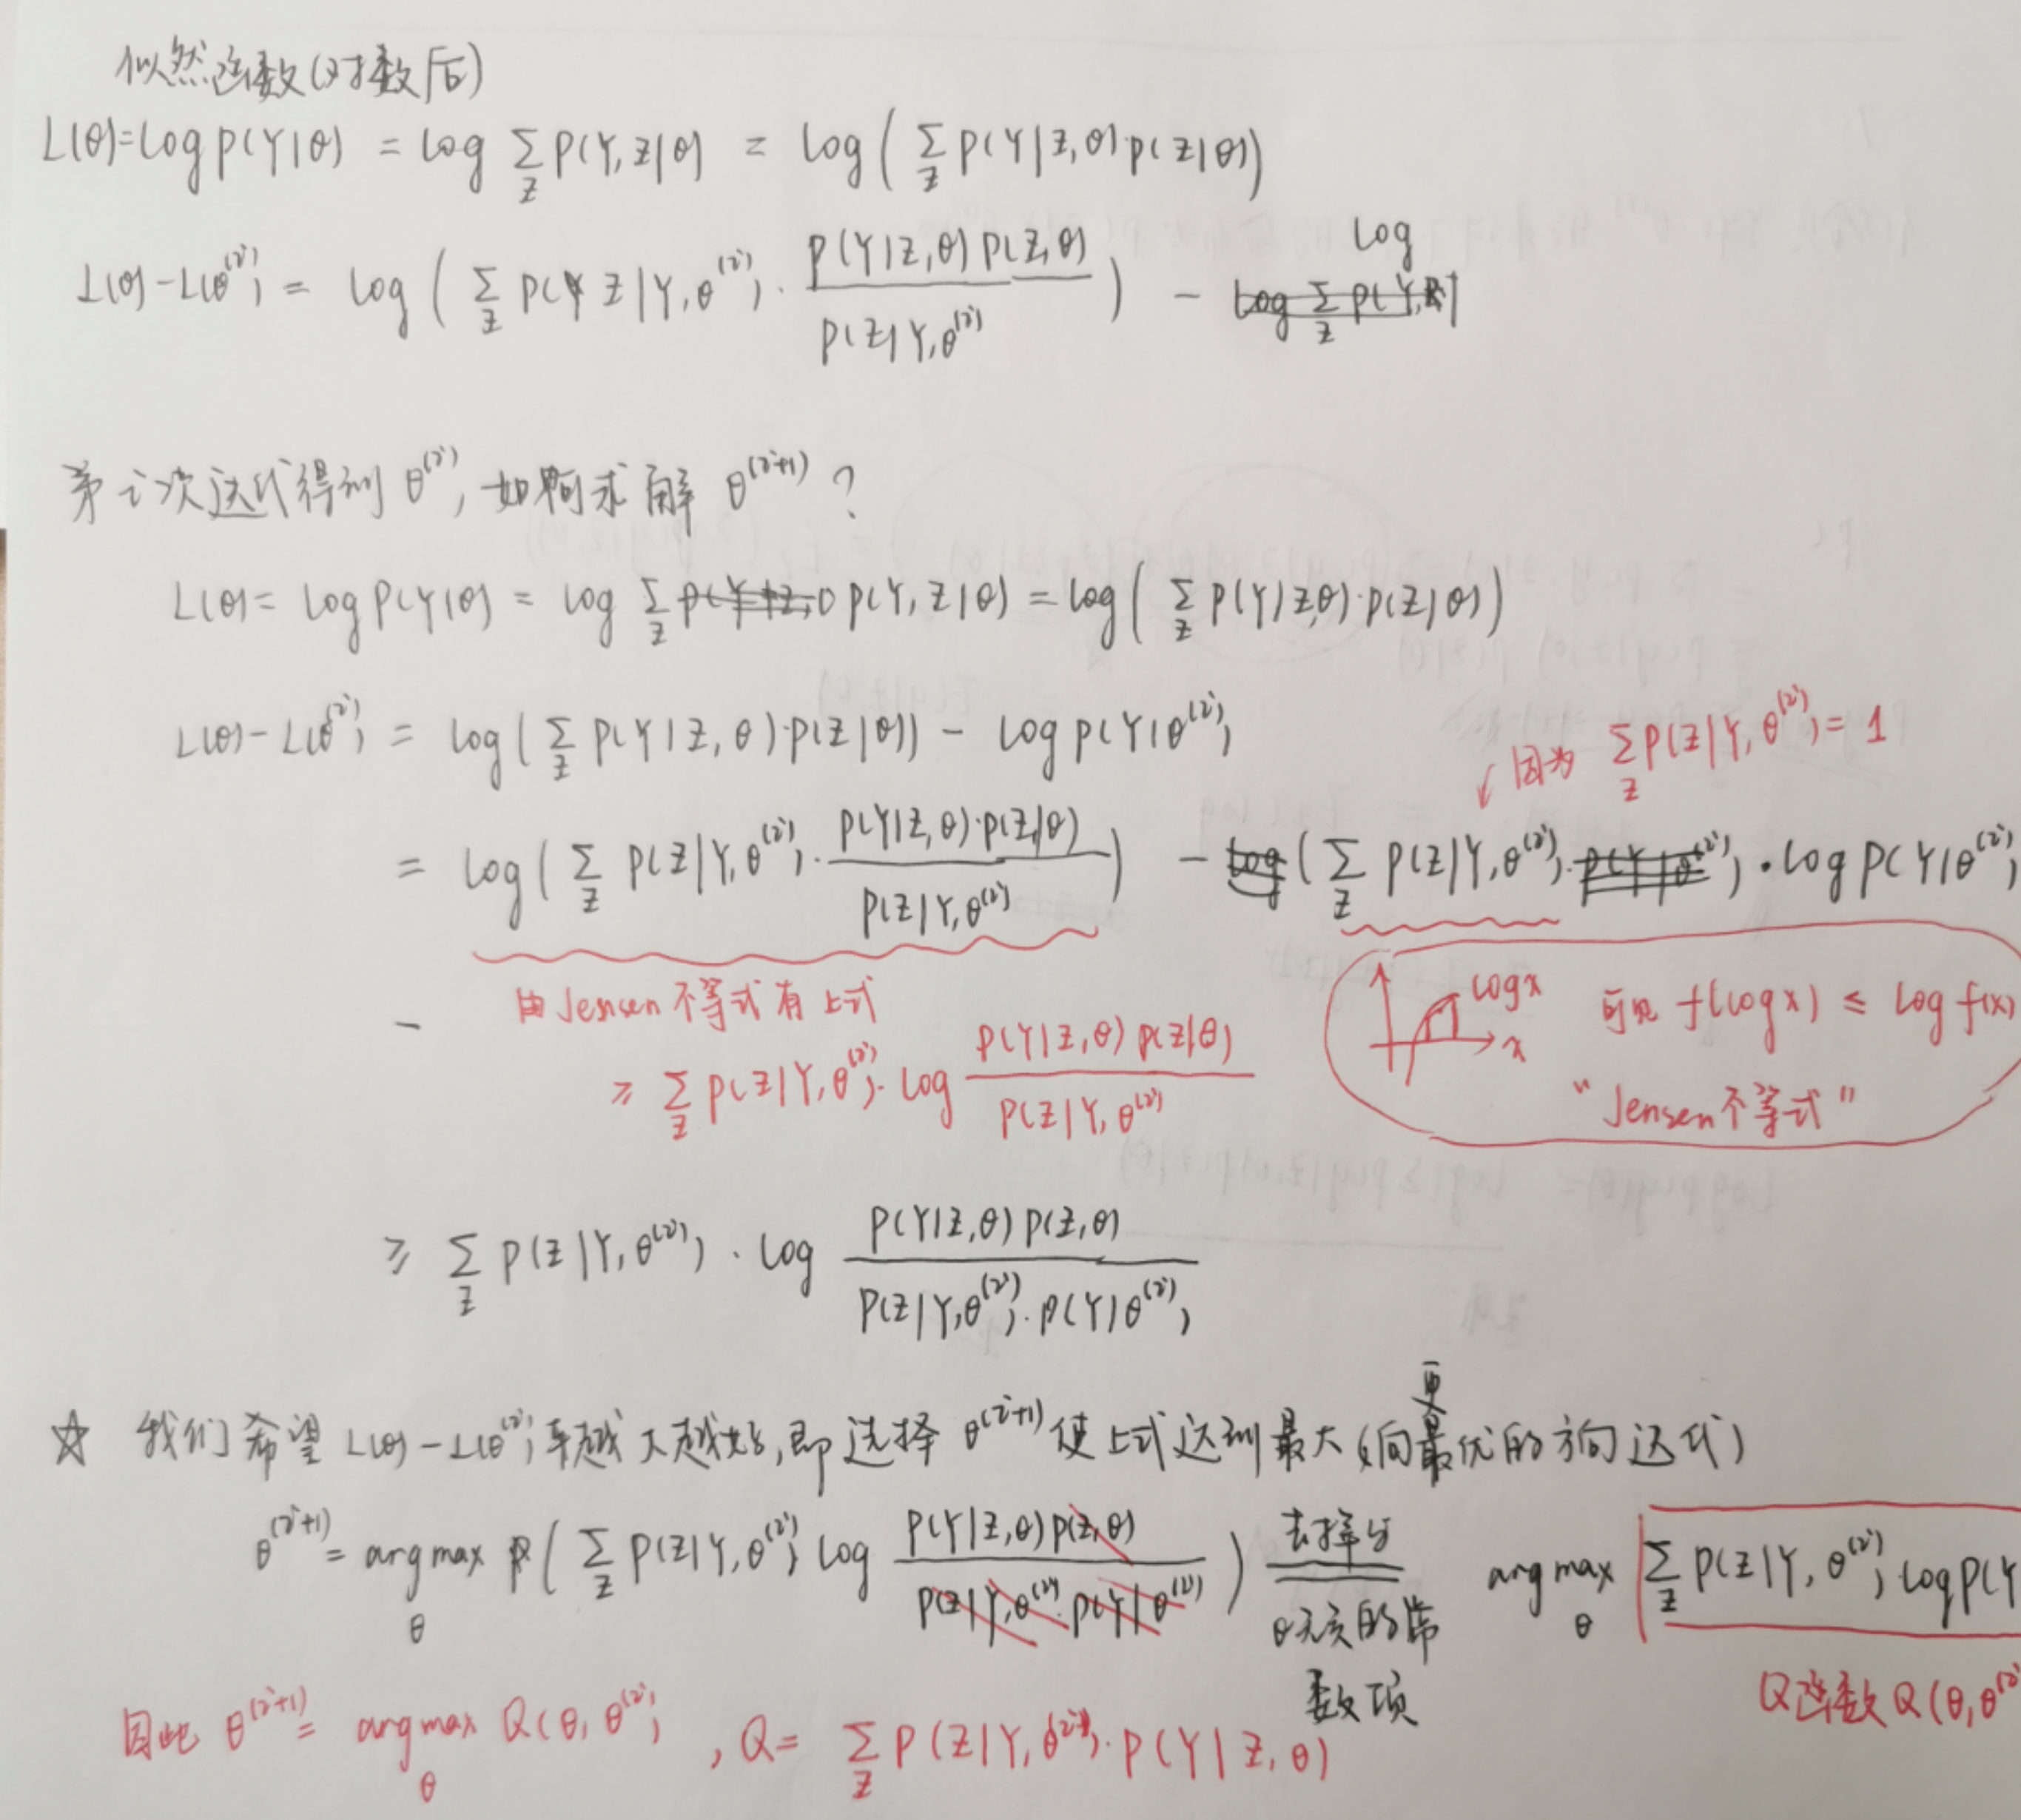 似然函数(对数后)
L(θ)=log P(Y|θ) = log Σ_Z P(Y,Z|θ) = log( Σ_Z P(Y|Z,θ)·P(Z|θ) )
L(θ)-L(θ^(i)) = log( Σ_Z P(Z|Y,θ^(i))· P(Y|Z,θ)P(Z,θ) / P(Z|Y,θ^(i)) ) - log
第i次迭代得到 θ^(i), 如何求解 θ^(i+1) ?
L(θ)= log P(Y|θ) = log Σ_Z P(Y,Z|θ) = log( Σ_Z P(Y|Z,θ)·P(Z|θ) )
L(θ)-L(θ^(i)) = log( Σ_Z P(Y|Z,θ)·P(Z|θ)) - log P(Y|θ^(i))
↙因为 Σ_Z P(Z|Y,θ^(i)) = 1
= log( Σ_Z P(Z|Y,θ^(i))· P(Y|Z,θ)·P(Z|θ) / P(Z|Y,θ^(i)) ) - ( Σ_Z P(Z|Y,θ^(i)) )·log P(Y|θ^(i))
由Jensen不等式有上式
≥ Σ_Z P(Z|Y,θ^(i))·log P(Y|Z,θ)P(Z|θ) / P(Z|Y,θ^(i))
log x
x
可见 f(log x) ≤ log f(x)
"Jensen不等式"
≥ Σ_Z P(Z|Y,θ^(i))·log P(Y|Z,θ)P(Z,θ) / P(Z|Y,θ^(i))·P(Y|θ^(i))
☆ 我们希望 L(θ)-L(θ^(i)) 越大越好,即选择 θ^(i+1) 使上式达到最大(向更优的方向迭代)
θ^(i+1) = arg max_θ ( Σ_Z P(Z|Y,θ^(i)) log P(Y|Z,θ)P(Z,θ) / P(Z|Y,θ^(i))·P(Y|θ^(i)) ) 去掉与θ无关的常数项 = arg max_θ Σ_Z P(Z|Y,θ^(i)) log P(Y
Q函数 Q(θ,θ^(i)
因此 θ^(i+1) = arg max_θ Q(θ,θ^(i)) , Q= Σ_Z P(Z|Y,θ^(i))·P(Y|Z,θ)